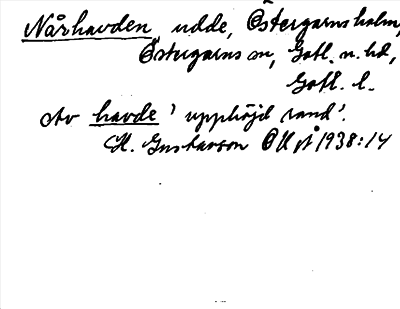 Nårhavden, udde, Östergarnsholm,
Östergarns sn, Gotl. n. hd,
Gotl. l.
Av havde 'upphöjd rand'.
H. Gustavson OUÅ 1938:14